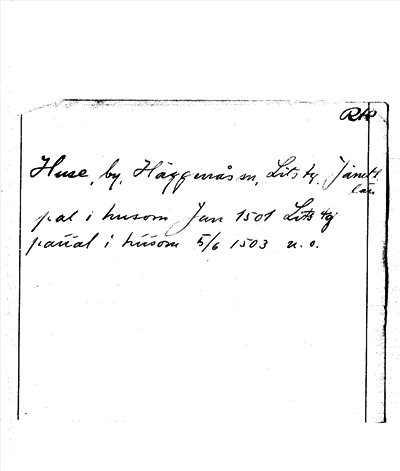 RK
Huse, by, Häggenås sn, Lits tg. Jämtl
län
pal i husom Jan 1501 Lits tg
paual i husom 5/6 1503 n. o.